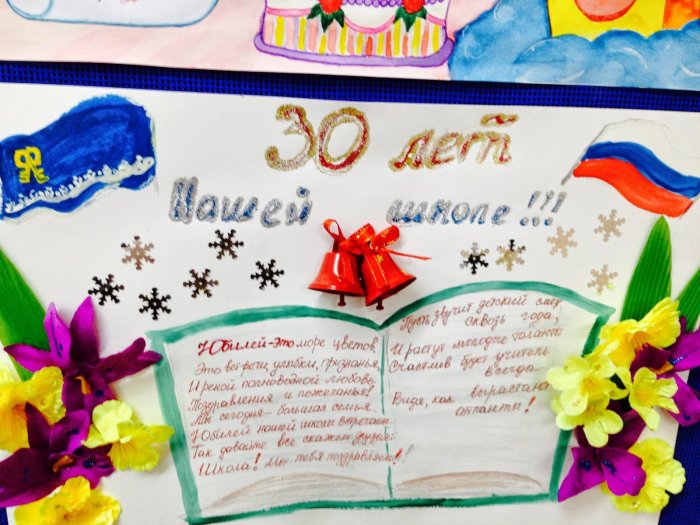 30 лет
Нашей школе!!!
Юбилей-это море цветов,
Это встречи, улыбки, признанья,
И рекой полноводной любовь,
Поздравления и пожеланья!
Мы сегодня - большая семья.
Юбилей нашей школы встречаем
Так давайте все скажем друзья:
Школа! Мы тебя поздравляем!
Пусть звучит детский смех
сквозь года,
И растут молодые таланты
Счастлив будет учитель
всегда.
Видя, как вырастают
атланты!